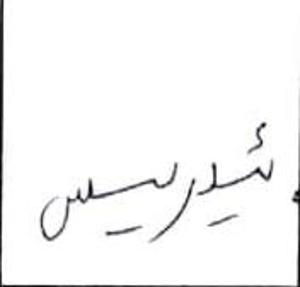 ئیدریس